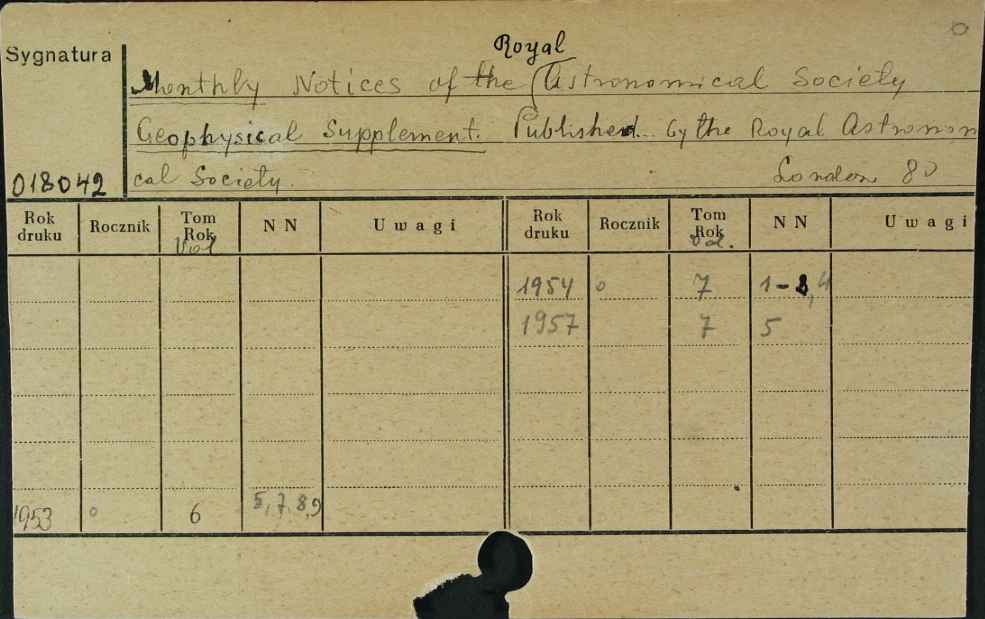 Royal
Sygnatura
Monthly Notices of the Astronomical Society
Geophysical Supplement. Published by the Royal Astronom
018042 cal Society. London 80
Rok druku Rocznik Tom Rok Vol NN Uwagi Rok druku Rocznik Tom Rok Vol. NN Uwagi
1954 o 7 1-8,4
1957 7 5
1953 o 6 5,7,8,9